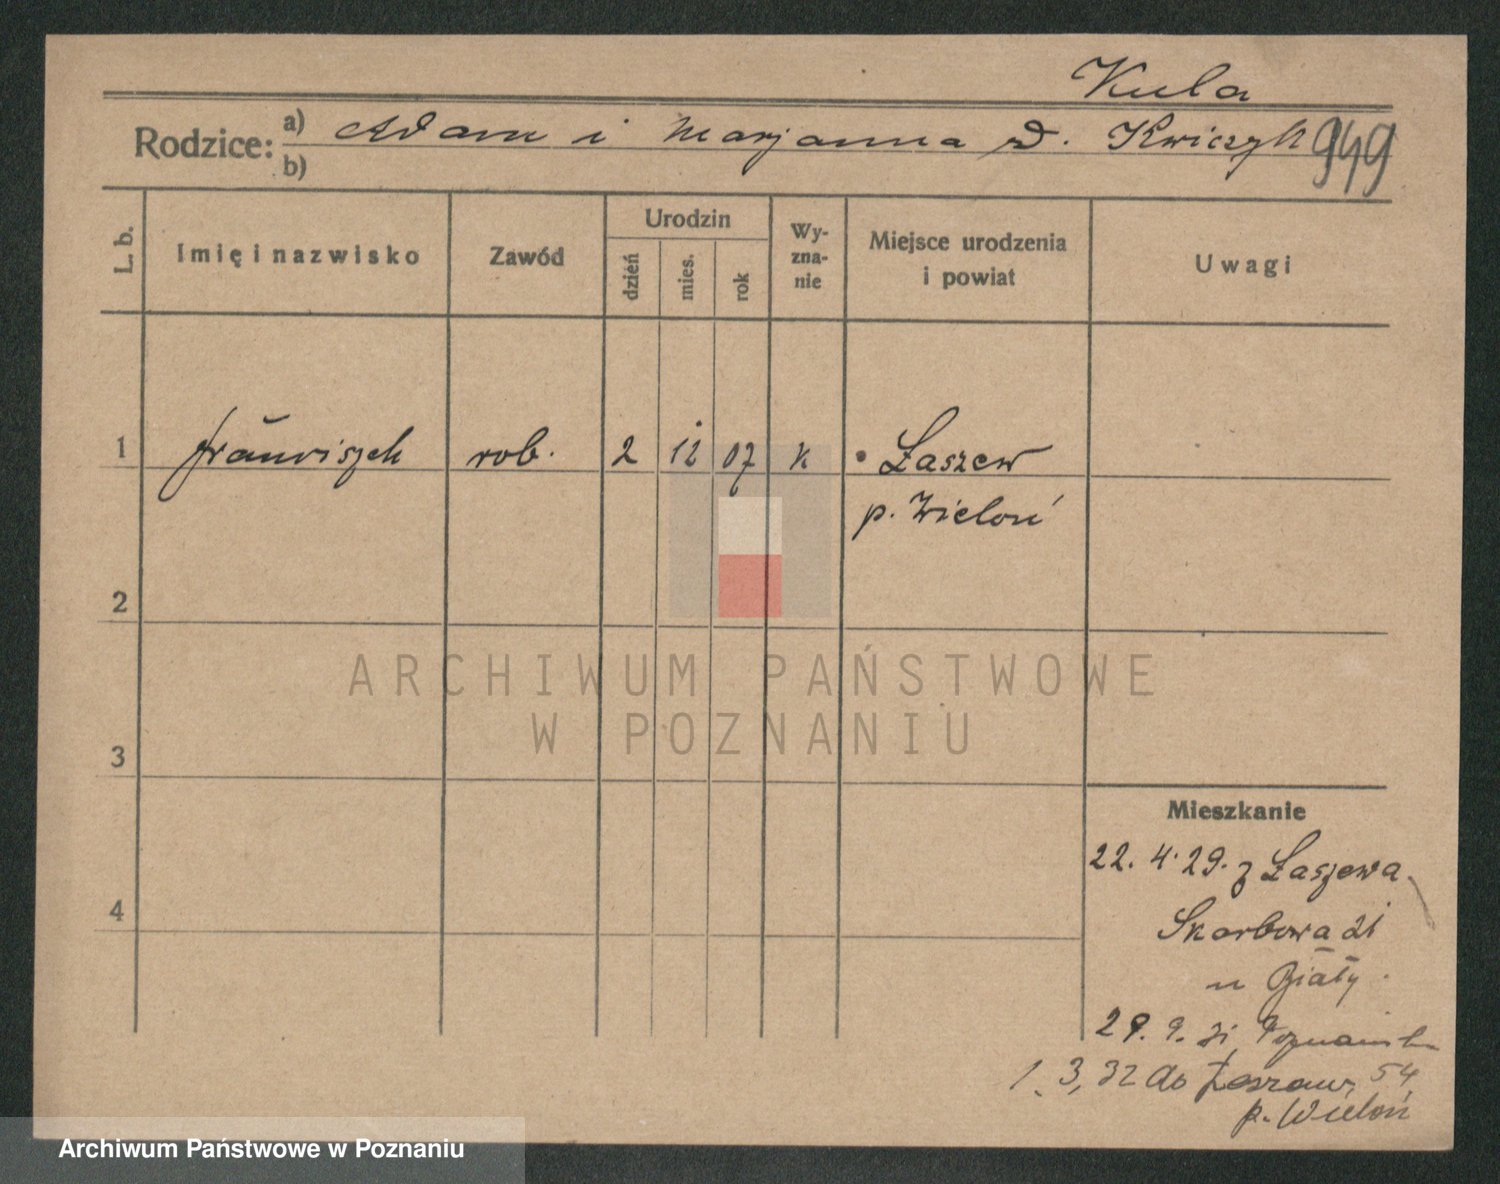 Kula
Rodzice: a) Adam i Marjanna d. Kwiczyk 949
b)
L. b. Imię i nazwisko Zawód Urodzin dzień mies. rok Wy-zna-nie Miejsce urodzenia i powiat Uwagi
1 Franciszek rob. 2 12 07 k Łaszew
p. Wieluń
2
3
Mieszkanie
22. 4. 29. z Łaszewa
4
Skarbowa 21
u Biały
29. 9. 31 Poznańska
1. 3. 32 do 54
p. Wieluń
ARCHIWUM PAŃSTWOWE
W POZNANIU
Archiwum Państwowe w Poznaniu